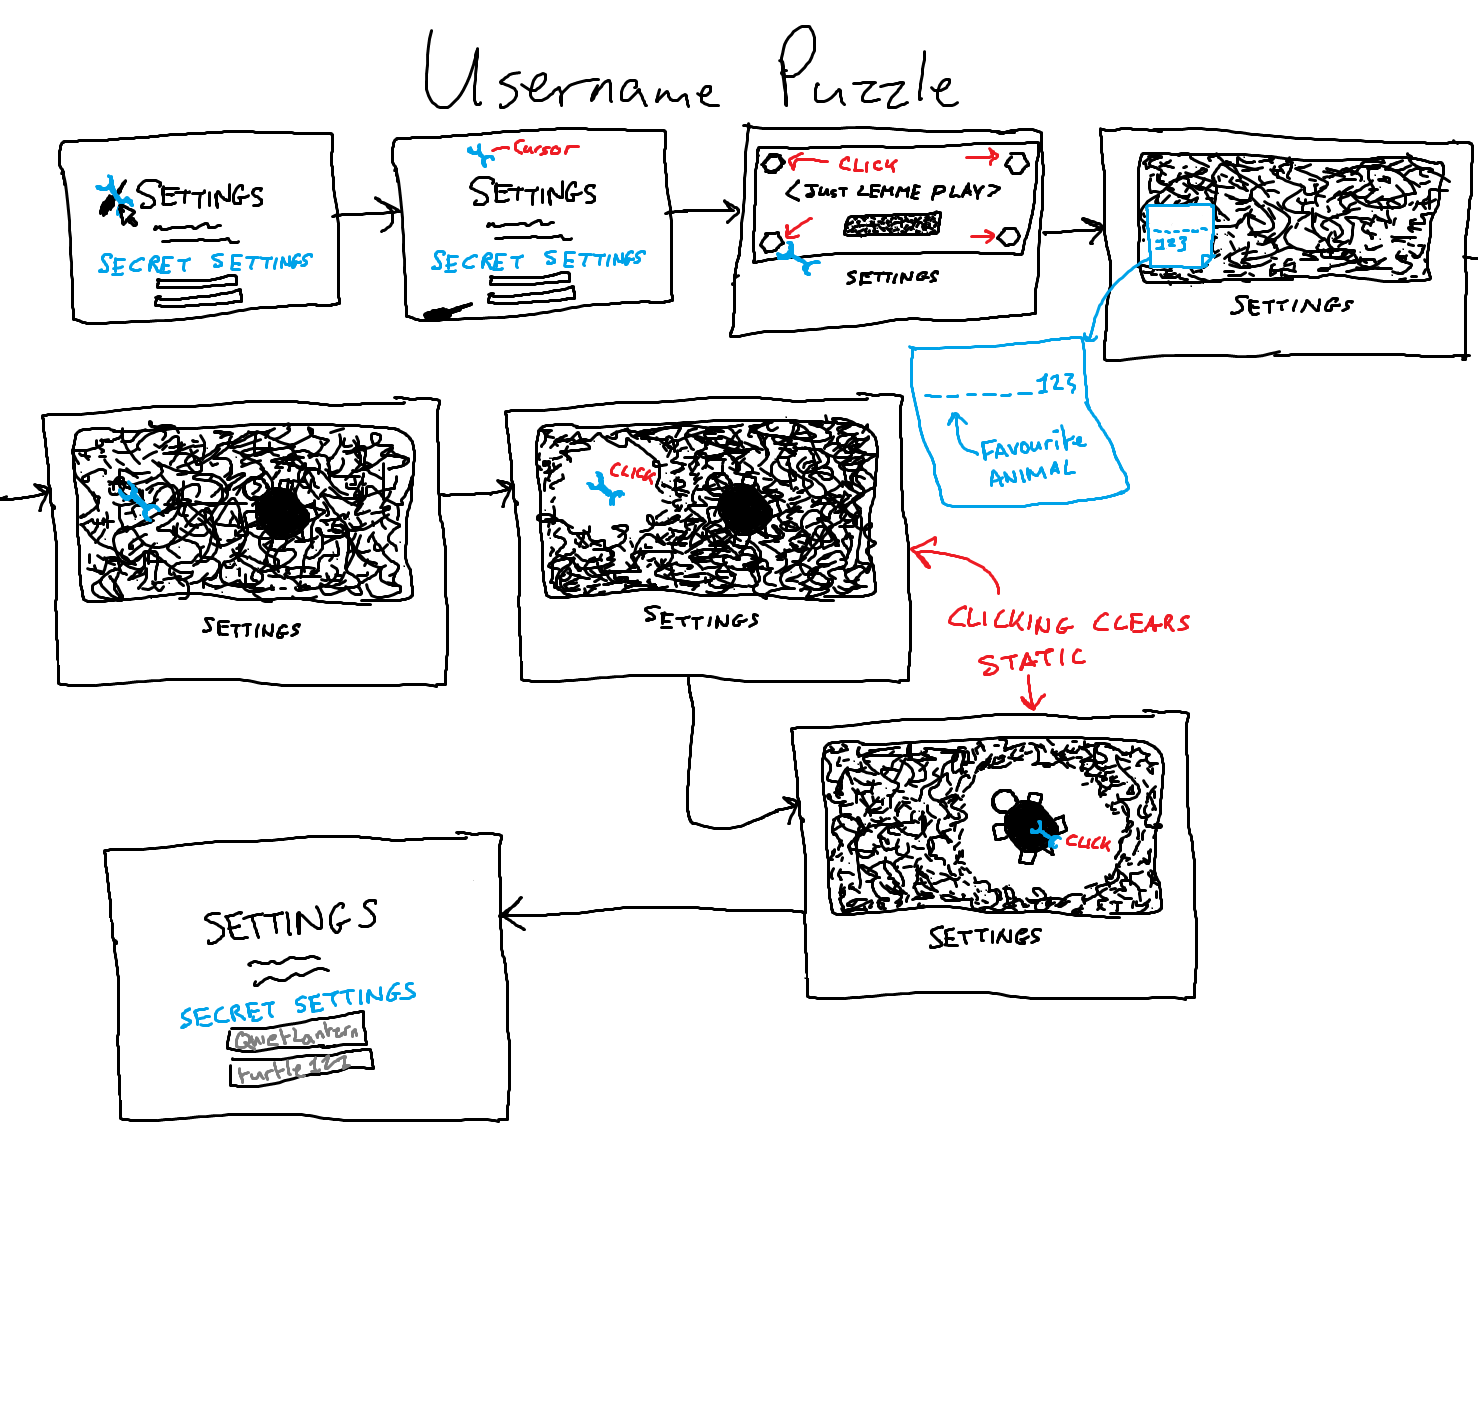 Username Puzzle
SETTINGS
SECRET SETTINGS
Cursor
SETTINGS
SECRET SETTINGS
CLICK
<JUST LEMME PLAY>
SETTINGS
123
SETTINGS
123
FAVOURITE
ANIMAL
SETTINGS
CLICK
SETTINGS
CLICKING CLEARS
STATIC
CLICK
SETTINGS
SETTINGS
SECRET SETTINGS
QwietLantern
turtle123